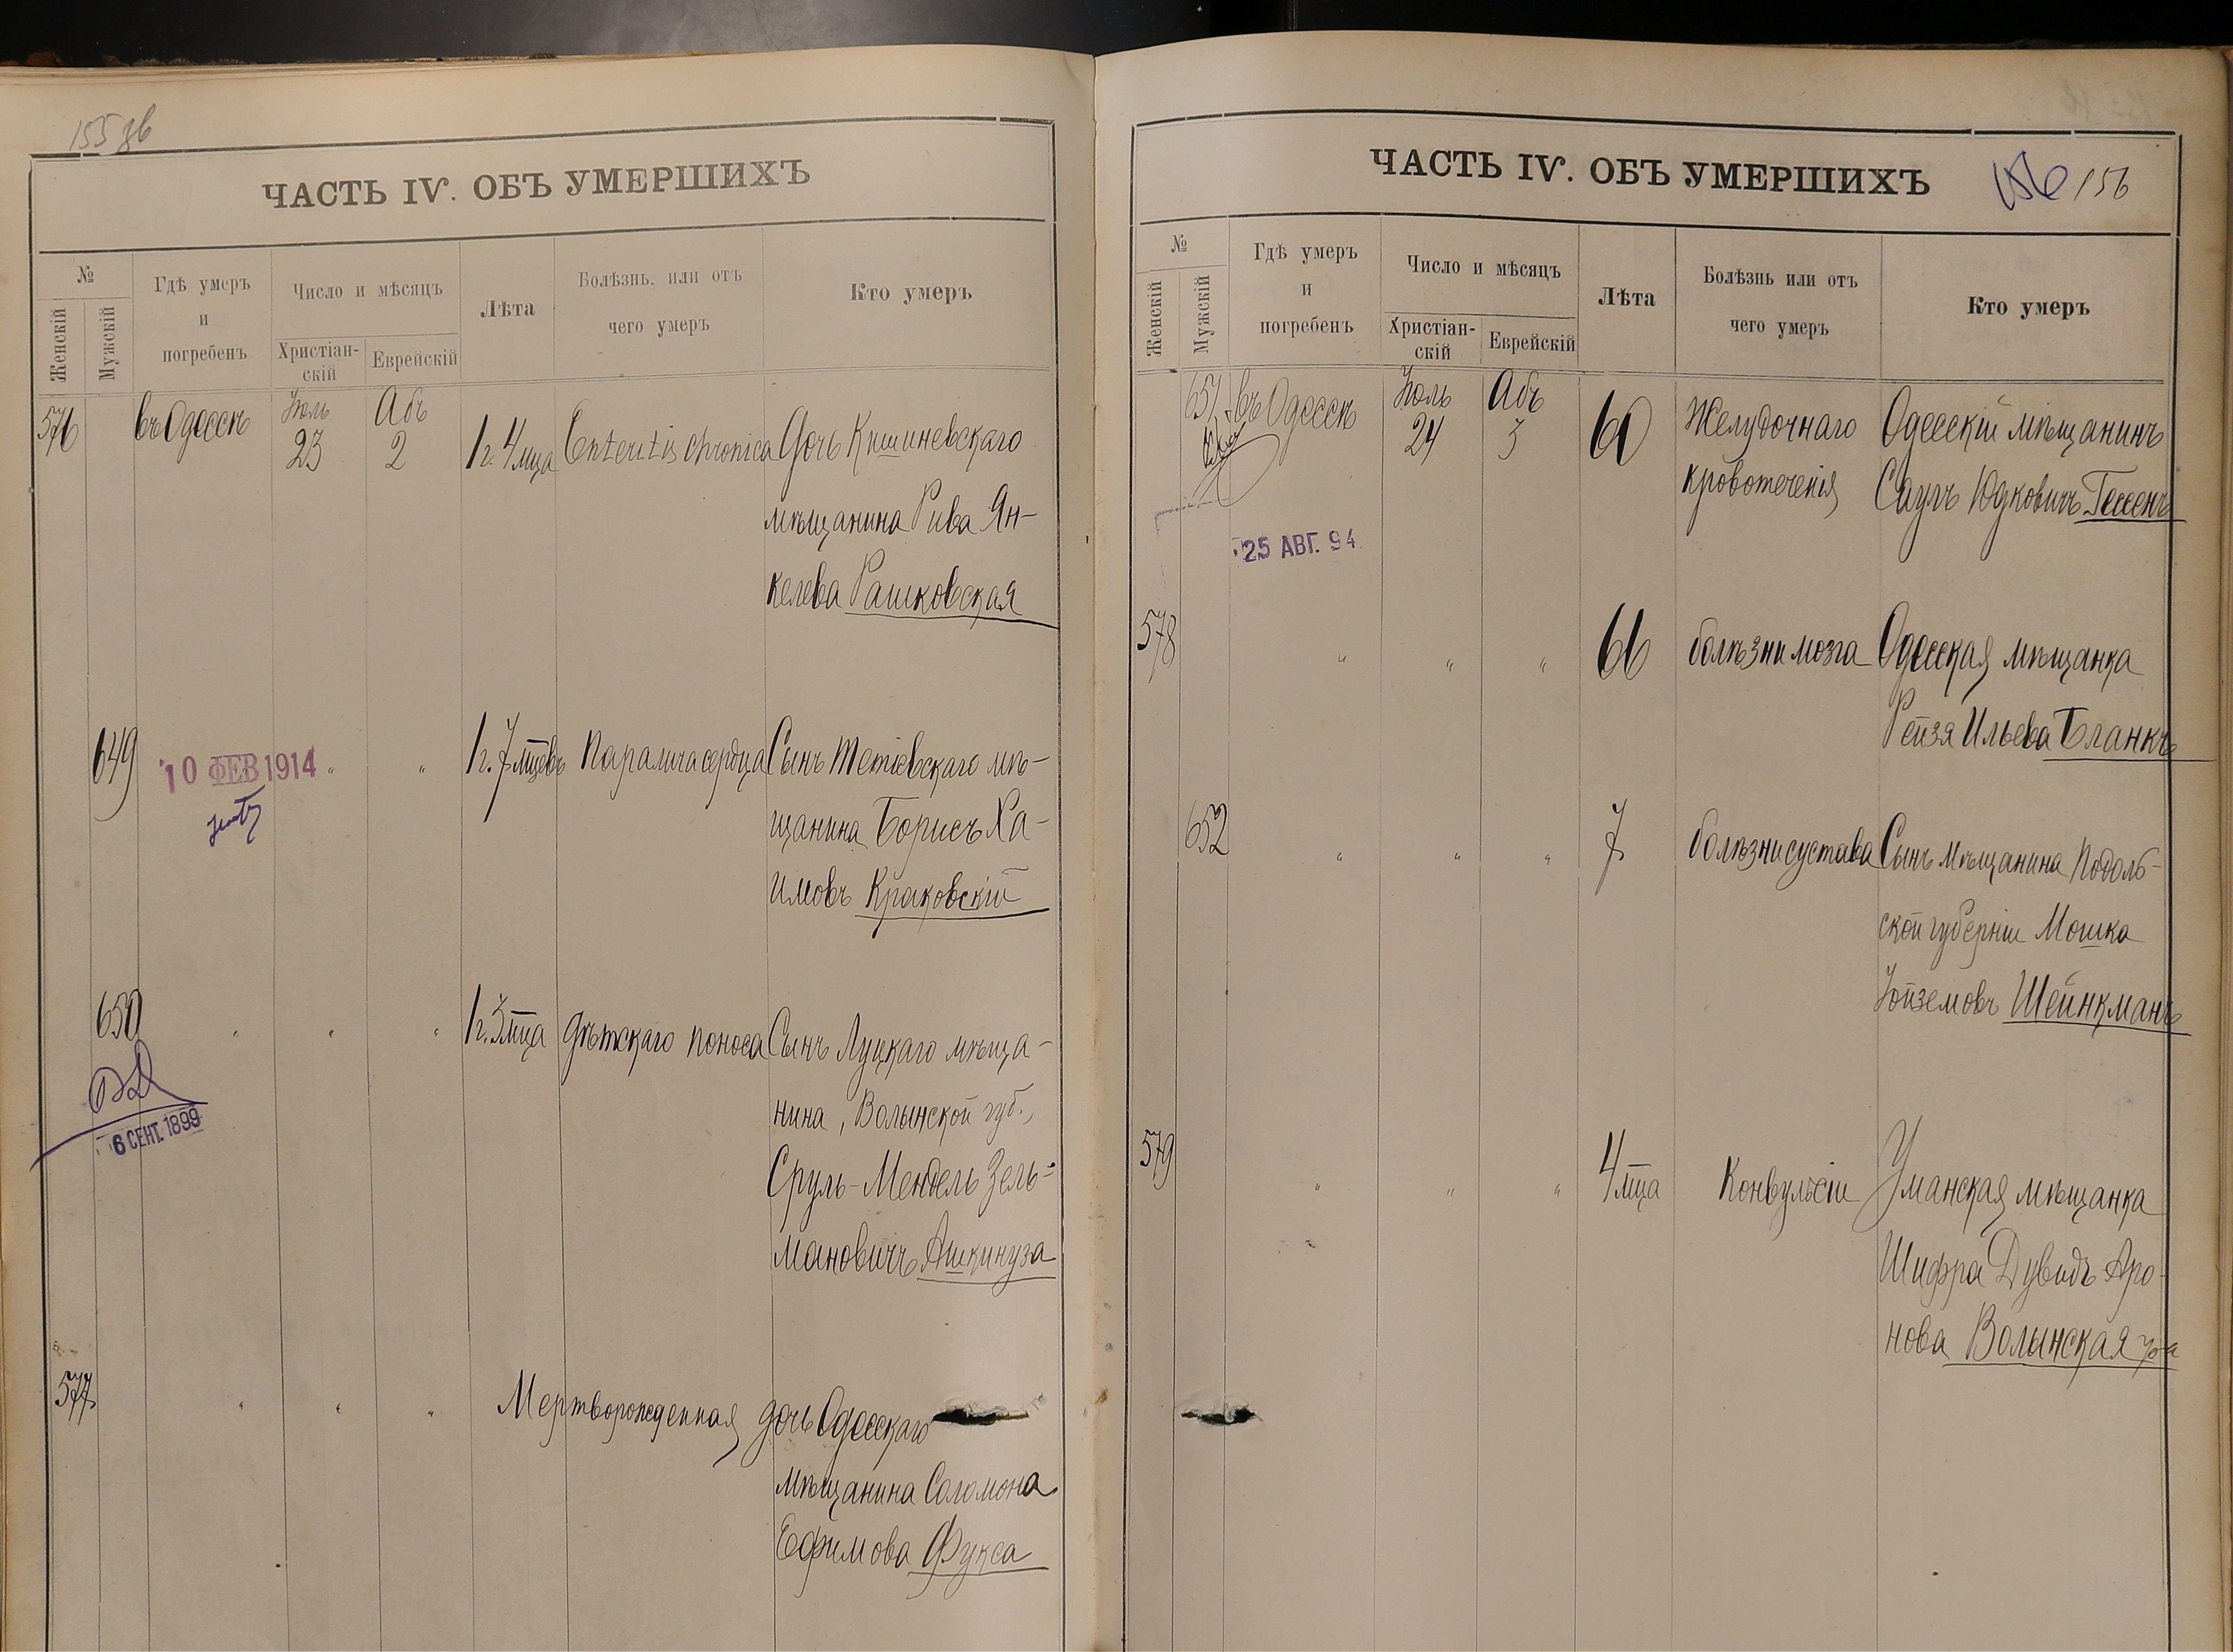 155 зв
ЧАСТЬ IV. ОБЪ УМЕРШИХЪ
№
Женскій
Мужскій
Гдѣ умеръ
и
погребенъ
Число и мѣсяцъ
Христіан-
скій
Еврейскій
Лѣта
Болѣзнь, или отъ
чего умеръ
Кто умеръ
576 въ Одессѣ Іюль 23 Абъ 2 1 г. 4 мца Enteritis chronica Дочь Кишиневскаго
мѣщанина Рива Ян-
келева Рашковская
649 " " 1 г. 7 мцевъ Паралича сердца Сынъ Тетіевскаго мѣ-
10 ФЕВ 1914
щанина Борисъ Ха-
имовъ Краковскій
650 " " " 1 г. 3 мца Дѣтскаго поноса Сынъ Луцкаго мѣща-
6 СЕНТ. 1899
нина, Волынской губ.,
Сруль-Мендель Зель-
мановичъ Ашкинуза
577 " " " Мертворожденная дочь Одесскаго
мѣщанина Соломона
Ефимова Фукса
ЧАСТЬ IV. ОБЪ УМЕРШИХЪ
156 156
№
Женскій
Мужскій
Гдѣ умеръ
и
погребенъ
Число и мѣсяцъ
Христіан-
скій
Еврейскій
Лѣта
Болѣзнь или отъ
чего умеръ
Кто умеръ
651 въ Одессѣ Іюль 24 Абъ 3 60 Желудочнаго Одесскій мѣщанинъ
кровотеченія Саулъ Юдковичъ Гессенъ
25 АВГ. 94
578 " " " 66 болѣзни мозга Одесская мѣщанка
Рейзя Ильева Бланкъ
652 " " " 7 болѣзни сустава Сынъ мѣщанина Подоль-
ской губерніи Мошка
Іойземовъ Шейнкманъ
579 " " " 4 мца Конвульсіи Уманская мѣщанка
Шифра Дувидъ Аро-
нова Волынская